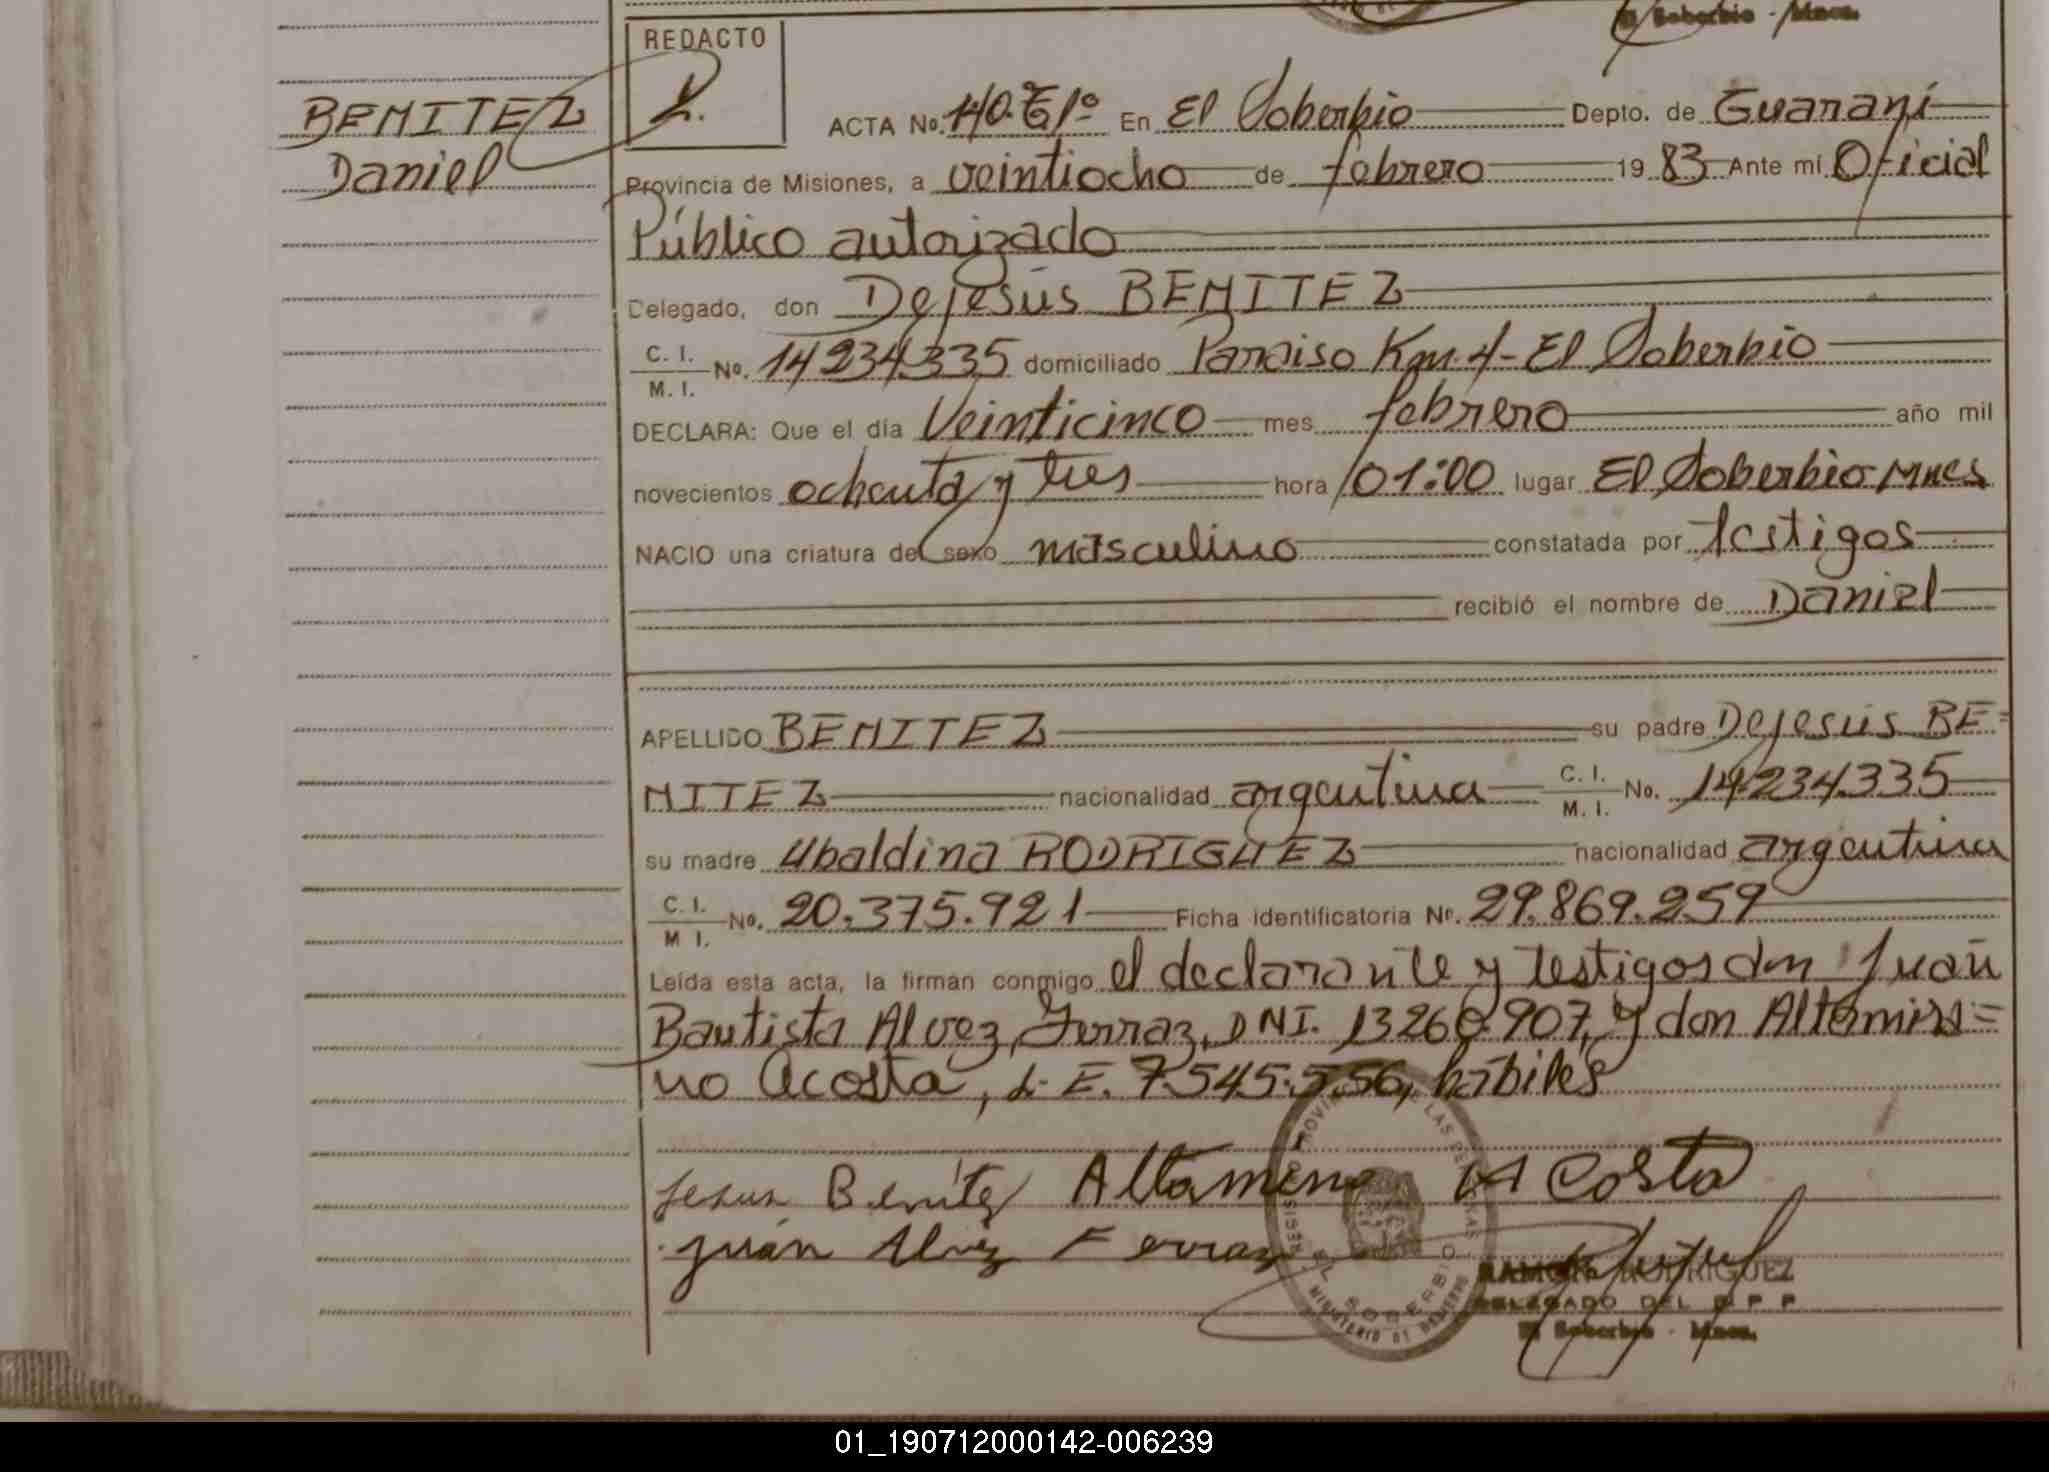 El Soberbio - Mnes.
REDACTO
BENITEZ
Daniel
ACTA No. 140. Tº 1º En El Soberbio Depto. de Guaraní
Provincia de Misiones, a veintiocho de febrero 19 83 Ante mí Oficial
Público autorizado
Delegado, don Dejesús BENITEZ
C. I.
M. I. No. 14234.335 domiciliado Paraiso Km. 4 - El Soberbio
DECLARA: Que el día Veinticinco mes febrero año mil
novecientos ochenta y tres hora 01:00 lugar El Soberbio Mnes
NACIO una criatura de sexo masculino constatada por testigos
recibió el nombre de Daniel
APELLIDO BENITEZ su padre Dejesús BE=
NITEZ nacionalidad argentina C. I.
M. I. No. 14.234.335
su madre Ubaldina RODRIGUEZ nacionalidad argentina
C. I.
M I. No. 20.375.921 Ficha identificatoria Nº. 29.869.259
Leída esta acta, la firman conmigo el declarante y testigos don Juan
Bautista Alvez Ferraz, DNI. 13260.907, y don Altamira=
no Acosta, L.E. 7.545.556, hábiles
Jesus Benitez Altamirno Acosta
Juán Alvez Ferraz
RAMON RODRIGUEZ
DELEGADO DEL R P P
El Soberbio - Mnes.
01_190712000142-006239